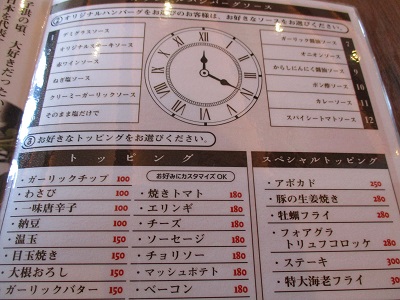 子供の頃、大好きだった
日本を代表
ハンバーグソース
②オリジナルハンバーグをお選びのお客様は、お好きなソースをお選びください。
1 デミグラスソース
2 オリジナルステーキソース
赤ワインソース
ねぎ塩ソース
クリーミーガーリックソース
そのまま塩だけで
ガーリック醤油ソース 7
オニオンソース
からしにんにく醤油ソース
ポン酢ソース 10
カレーソース 11
スパイシートマトソース 12
③お好きなトッピングをお選びください。
トッピング
お好みにカスタマイズOK
・ガーリックチップ 100
・わさび 100
・一味唐辛子 100
・納豆 100
・温玉 150
・目玉焼き 150
・大根おろし 150
・ガーリックバター 150
・焼きトマト 180
・エリンギ 180
・チーズ 180
・ソーセージ 180
・チョリソー 180
・マッシュポテト 180
・ベーコン 180
スペシャルトッピング
・アボカド 250
・豚の生姜焼き 280
・牡蠣フライ 280
・フォアグラ
トリュフコロッケ 280
・ステーキ 300
・特大海老フライ 300